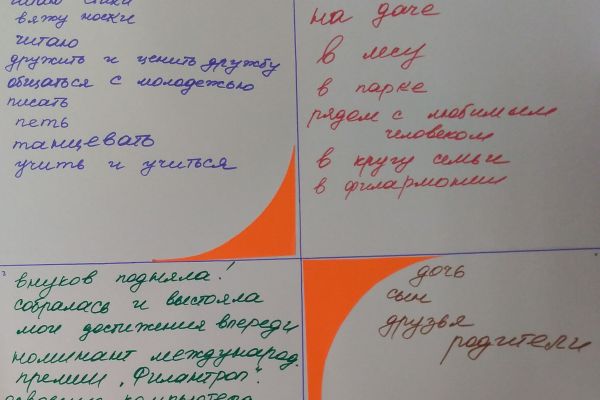 вяжу носки
читаю
дружить и ценить дружбу
общаться с молодежью
писать
петь
танцевать
учить и учиться
на даче
в лесу
в парке
рядом с любимым
человеком
в кругу семьи
в филармонии
внуков подняла!
собралась и выстояла
мои достижения впереди
номинант международ.
премии „Филантроп".
дочь
сын
друзья
родители